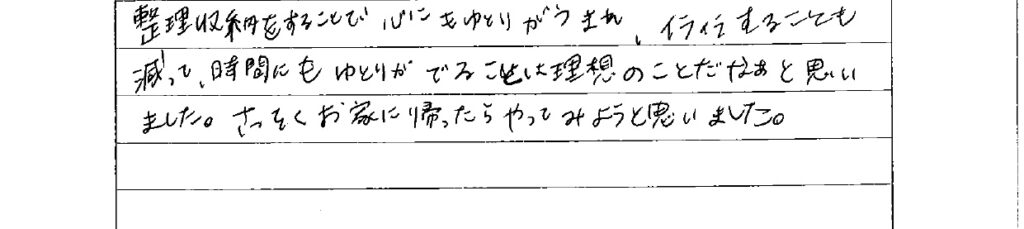 整理収納をすることで心にもゆとりがうまれ、イライラすることも
減って、時間にもゆとりがでることは理想のことだなぁと思い
ました。さっそくお家に帰ったらやってみようと思いました。